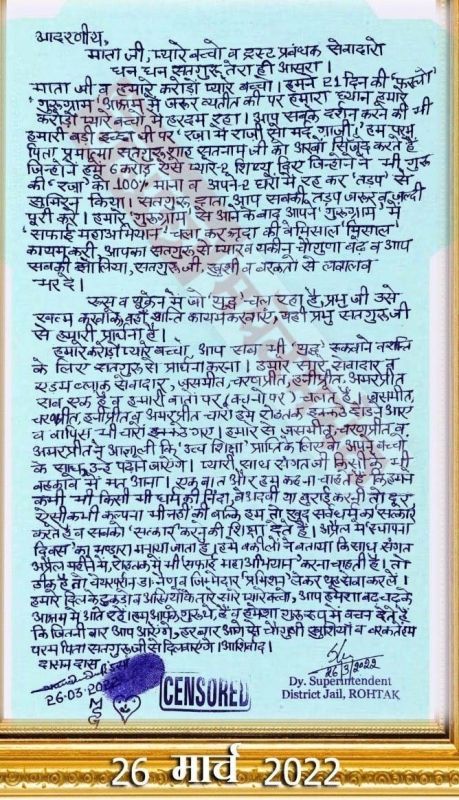 आदरणीय,
माता जी, प्यारे बच्चो व ट्रस्ट प्रबंधक सेवादारो
धन धन सतगुरु तेरा ही आसरा।
माता जी व हमारे करोड़ों प्यारे बच्चो। हमने 21 दिन की 'फरलो'
'गुरुग्राम' आश्रम में जरूर व्यतीत की पर हमारा ध्यान हमारे
करोड़ों प्यारे बच्चो में हरदम रहा। आप सबके दर्शन करने की भी
हमारी बड़ी इच्छा थी पर 'रजा में राजी सो मर्द गाजी।' हम
पिता परमात्मा सतगुरु शाह सतनाम जी का अरबों सिजदा करते हैं
जिन्होंने हमें 6 करोड़ ऐसे प्यारे-2 शिष्य दिए जिन्होंने भी गुरु
की 'रजा' को 100% माना व अपने-2 घरों में रह कर 'तड़प' से
सुमिरन किया। सतगुरु दाता, आप सबकी तड़प जरूर व जल्दी
पूरी करें। हमारे 'गुरुग्राम' से आने के बाद आपने 'गुरुग्राम' में
'सफाई महाअभियान' चला कर श्रद्धा की बेमिसाल मिसाल
कायम करी, आपका सतगुरु से प्यार व यकीन चौगुणा बढ़े व आप
सबकी झोलियां, सतगुरु जी, खुशी व बरकतों से लबालब
भर दे।
रूस व यूक्रेन में जो 'युद्ध' चल रहा है, प्रभु जी उसे
खत्म करवाके वहाँ शान्ति कायम करवाएं, यही प्रभु सतगुरु जी
से हमारी प्रार्थना है।
हमारे करोड़ों प्यारे बच्चो, आप सब भी 'युद्ध' रुकवाने व शांति
के लिए सतगुरु से प्रार्थना करना। हमारे सारे सेवादार व
एडम ब्लाक सेवादार, जसमीत, चरणप्रीत, हनीप्रीत, अमरप्रीत
सब एक हैं व हमारी बातों पर (वचनों पर) चलते हैं। जसमीत,
चरणप्रीत, हनीप्रीत, व अमरप्रीत चारों हमें रोहतक, इकट्ठे छोड़ने आए
व वापिस भी चारों इकट्ठे गए। हमारे से जसमीत, चरणप्रीत, व
अमरप्रीत ने आज्ञा ली कि 'उच्च शिक्षा' प्राप्ति के लिए वो अपने बच्चों
के साथ उन्हें पढ़ाने जाएंगे। प्यारी साध संगत जी किसी के भी
बहकावे में मत आना। एक बात और हम कहना चाहते हैं कि हमने
कभी भी किसी भी धर्म की निंदा, बेअदबी या बुराई करनी तो दूर
ऐसी कभी कल्पना भी नहीं की बल्कि हम तो खुद सर्वधर्म का सत्कार
करते हैं व सबको 'सत्कार' करने की शिक्षा देते हैं। अप्रैल में 'स्थापना
दिवस' का भण्डारा मनाया जाता है। हमें वकीलों ने बताया कि साध संगत
अप्रैल महीने में, रोहतक में भी 'सफाई महा अभियान' करना चाहती है। तो
ठीक है तो, चेयरपर्सन डा. नैन व जिम्मेदार 'प्रमिशन' लेकर यह सेवा कर लें।
हमारे दिल के टुकड़ो व अखियों के तारे सारे प्यारे बच्चो, आप हमेशा बढ़ चढ़ के
आश्रम में आते रहें। हम आपके गुरु थे, हैं व हमेशा गुरु रूप में वचन देते हैं
कि जितनी बार आप आएंगे, हर बार आगे से चौगुणी खुशियाँ व बरकतें हम
परम पिता सतगुरु जी से दिलवाएंगे। आशीर्वाद।
दासन दास
26-03-2022
MSG
CENSORED
26/3/2022
Dy. Superintendent
District Jail, ROHTAK
26 मार्च 2022